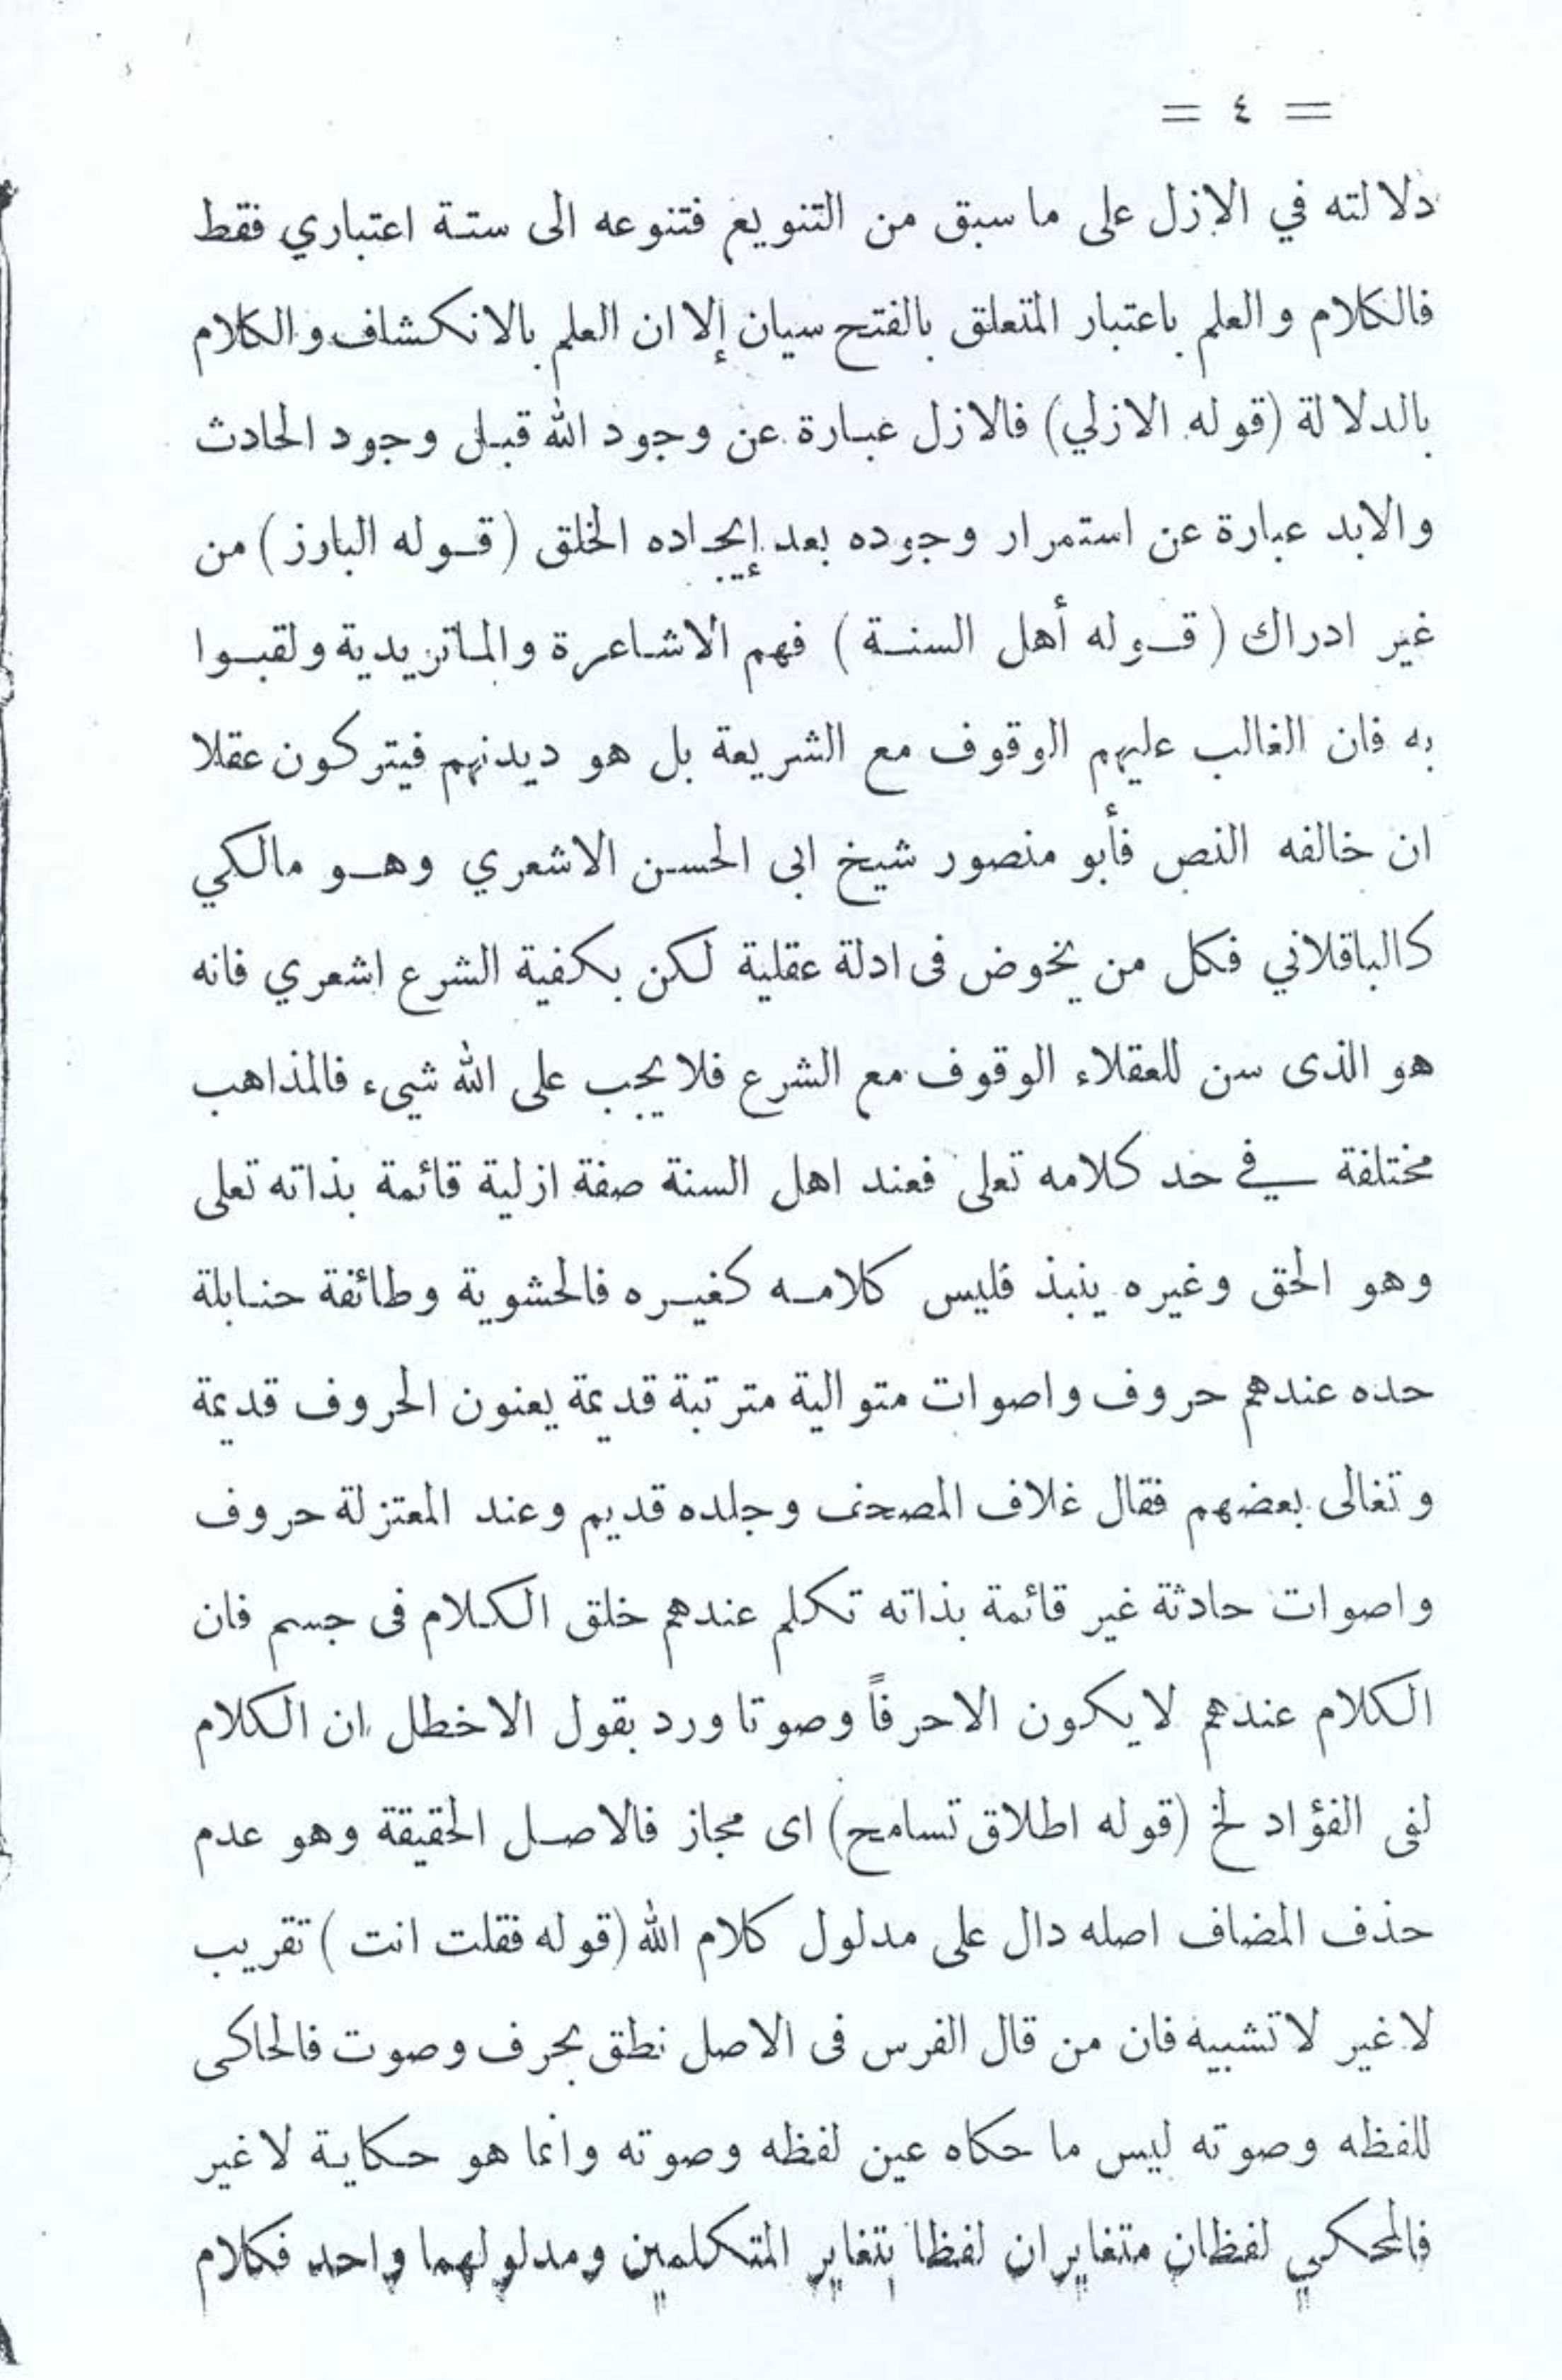 = ٤ =
دلالته في الازل على ما سبق من التنويع فتنوعه الى ستة اعتباري فقط
فالكلام والعلم باعتبار المتعلق بالفتح سيان إلا ان العلم بالانكشاف والكلام
بالدلالة (قوله الازلي) فالازل عبارة عن وجود الله قبل وجود الحادث
والابد عبارة عن استمرار وجوده بعد إيجاده الخلق (قوله البارز) من
غير ادراك (قوله أهل السنة) فهم الاشاعرة والماتريدية ولقبوا
به فان الغالب عليهم الوقوف مع الشريعة بل هو ديدنهم فيتركون عقلا
ان خالفه النص فأبو منصور شيخ ابى الحسن الاشعري وهو مالكي
كالباقلاني فكل من يخوض فى ادلة عقلية لكن بكفية الشرع اشعري فانه
هو الذى سن للعقلاء الوقوف مع الشرع فلا يجب على الله شيء فالمذاهب
مختلفة في حد كلامه تعلى فعند اهل السنة صفة ازلية قائمة بذاته تعلى
وهو الحق وغيره ينبذ فليس كلامه كغيره فالحشوية وطائفة حنابلة
حده عندهم حروف واصوات متوالية مترتبة قديمة يعنون الحروف قديمة
وتغالى بعضهم فقال غلاف المصحف وجلده قديم وعند المعتزلة حروف
واصوات حادثة غير قائمة بذاته تكلم عندهم خلق الكلام فى جسم فان
الكلام عندهم لا يكون الاحرفاً وصوتا ورد بقول الاخطل ان الكلام
لفى الفؤاد لخ (قوله اطلاق تسامح) اى مجاز فالاصل الحقيقة وهو عدم
حذف المضاف اصله دال على مدلول كلام الله (قوله فقلت انت) تقريب
لا غير لا تشبيه فان من قال الفرس فى الاصل نطق بحرف وصوت فالحاكى
للفظه وصوته ليس ما حكاه عين لفظه وصوته وانما هو حكاية لا غير
فالمحكي لفظان متغايران لفظا بتغاير المتكلمين ومدلولهما واحد فكلام